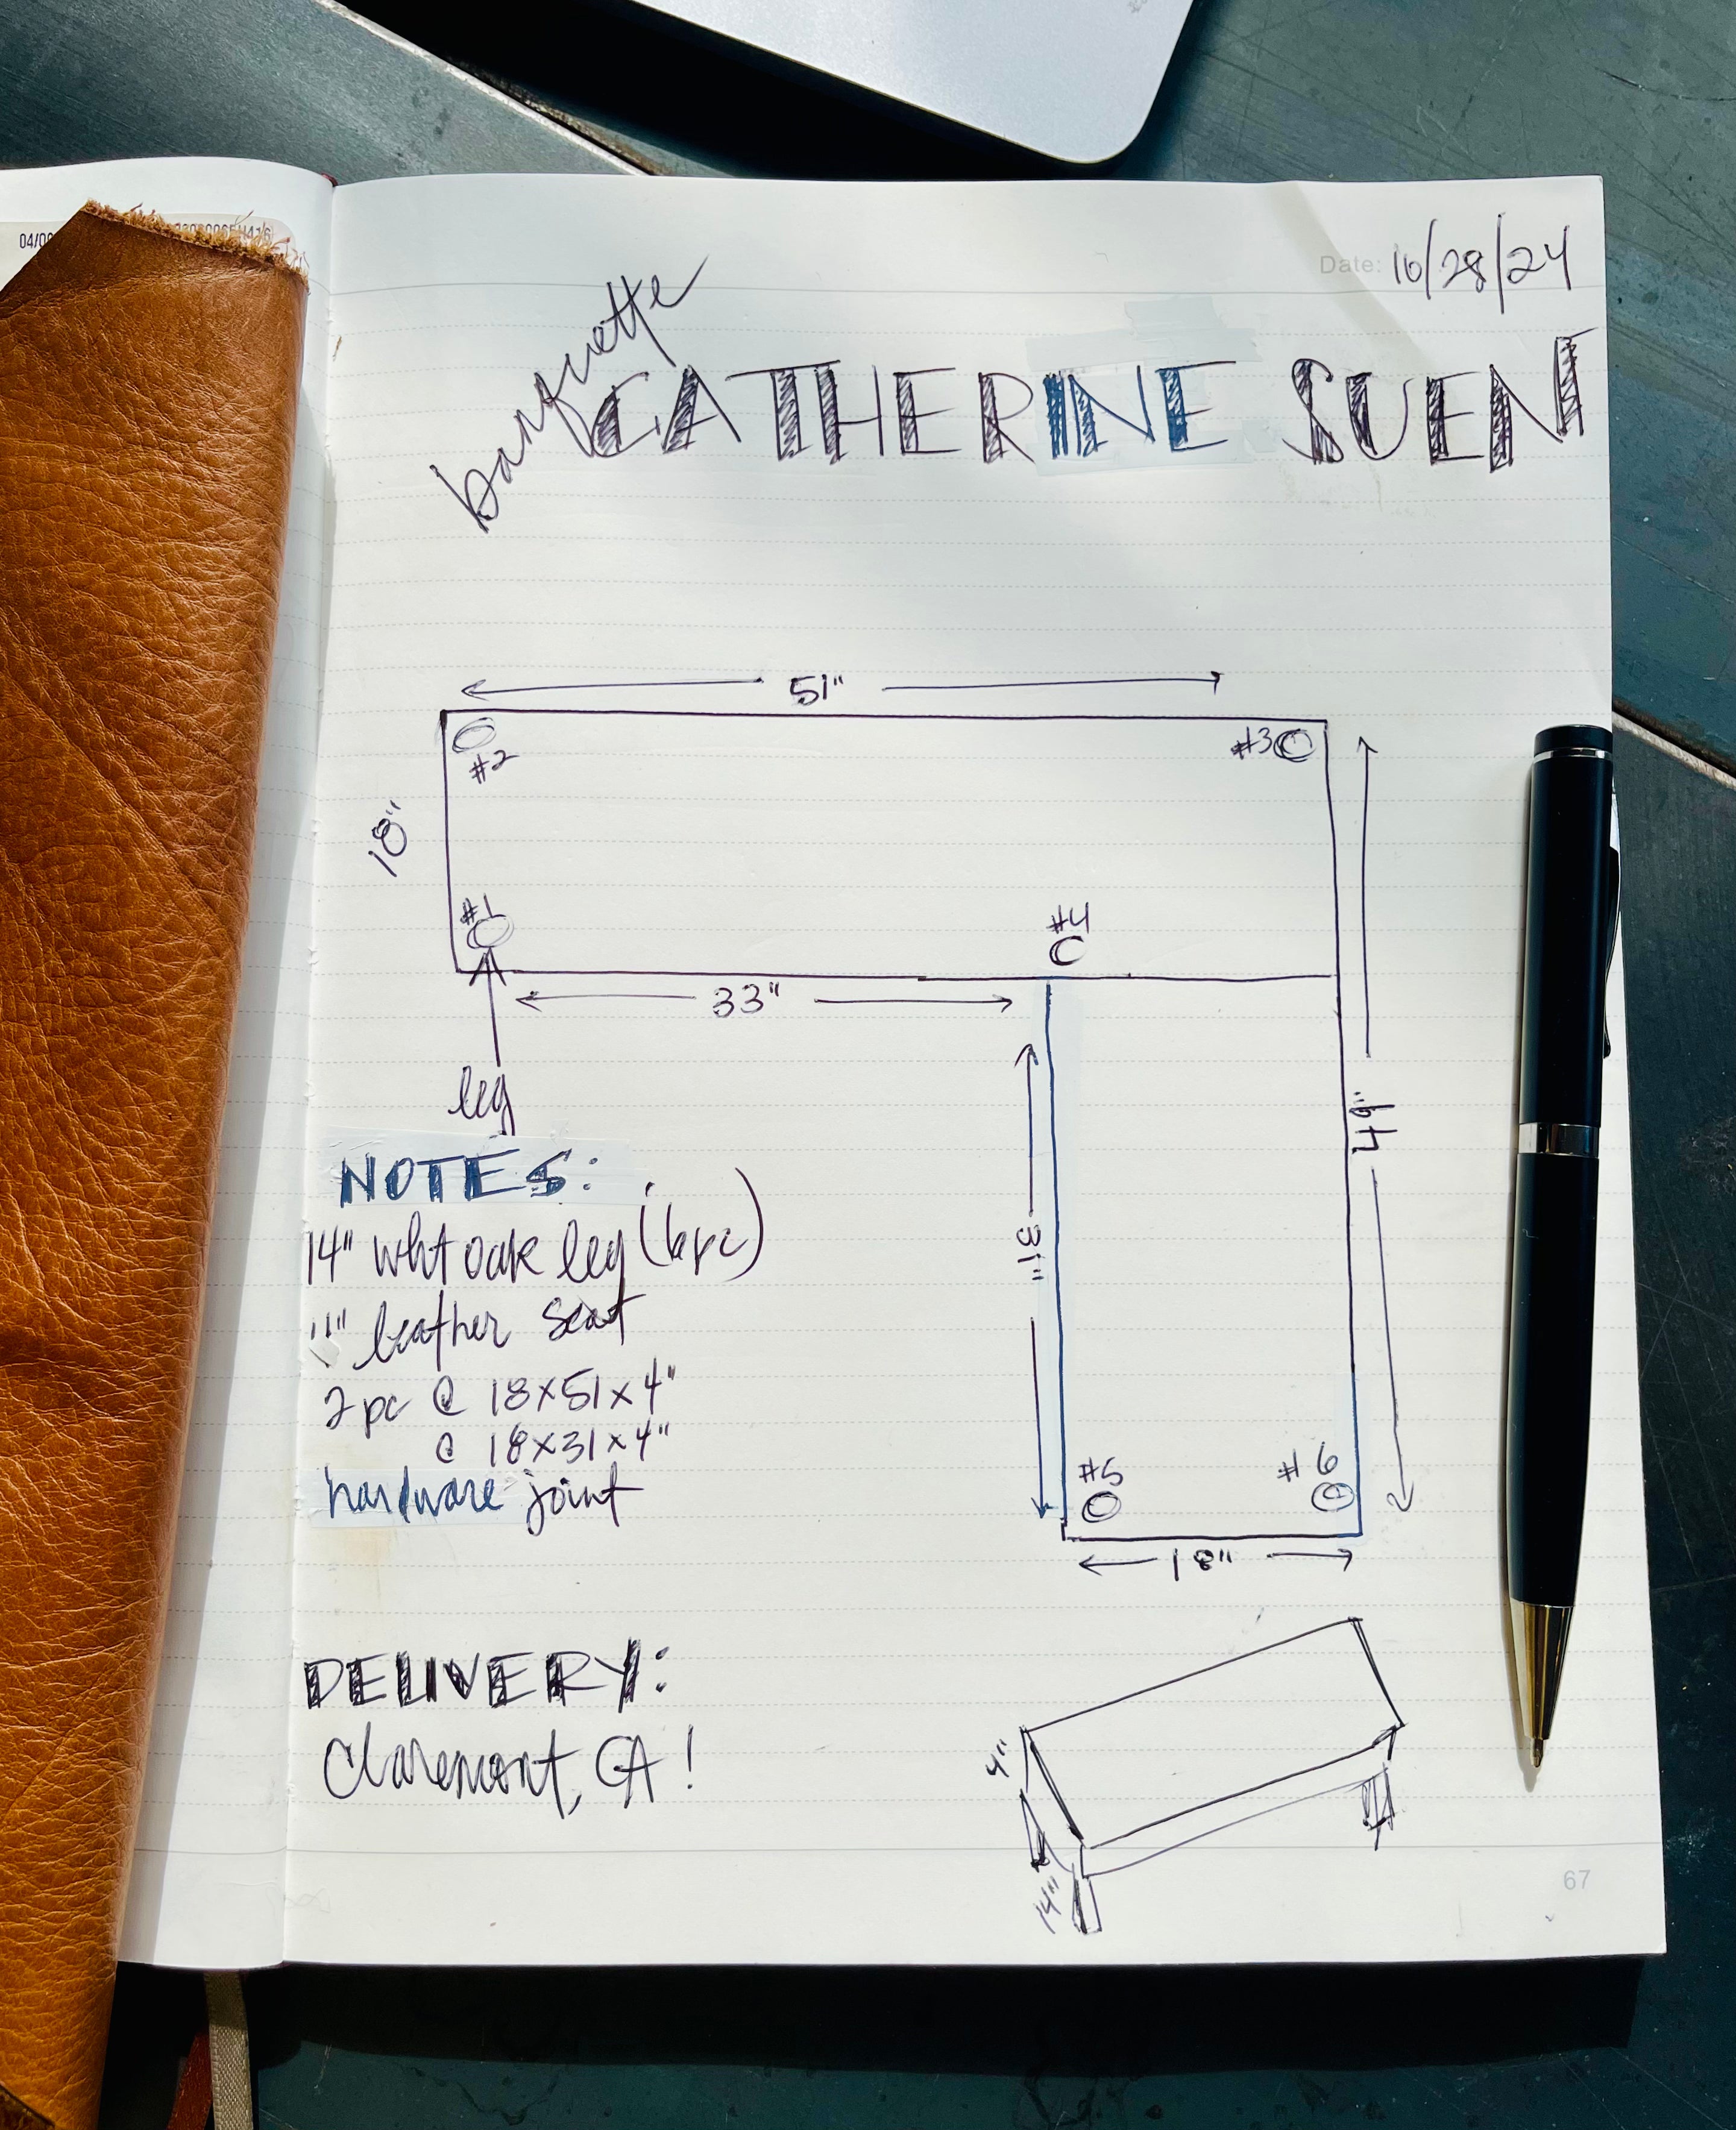 Date: 10/28/24
banquette
CATHERINE SUEN
51"
#2
#3
18"
#1
#4
33"
leg
49"
31"
NOTES:
14" wht oak leg (6pc)
leather seat
2 pc @ 18x51x4"
@ 18x31x4"
hardware joint
#5
#6
18"
DELIVERY:
Claremont, CA!
4"
14"
67